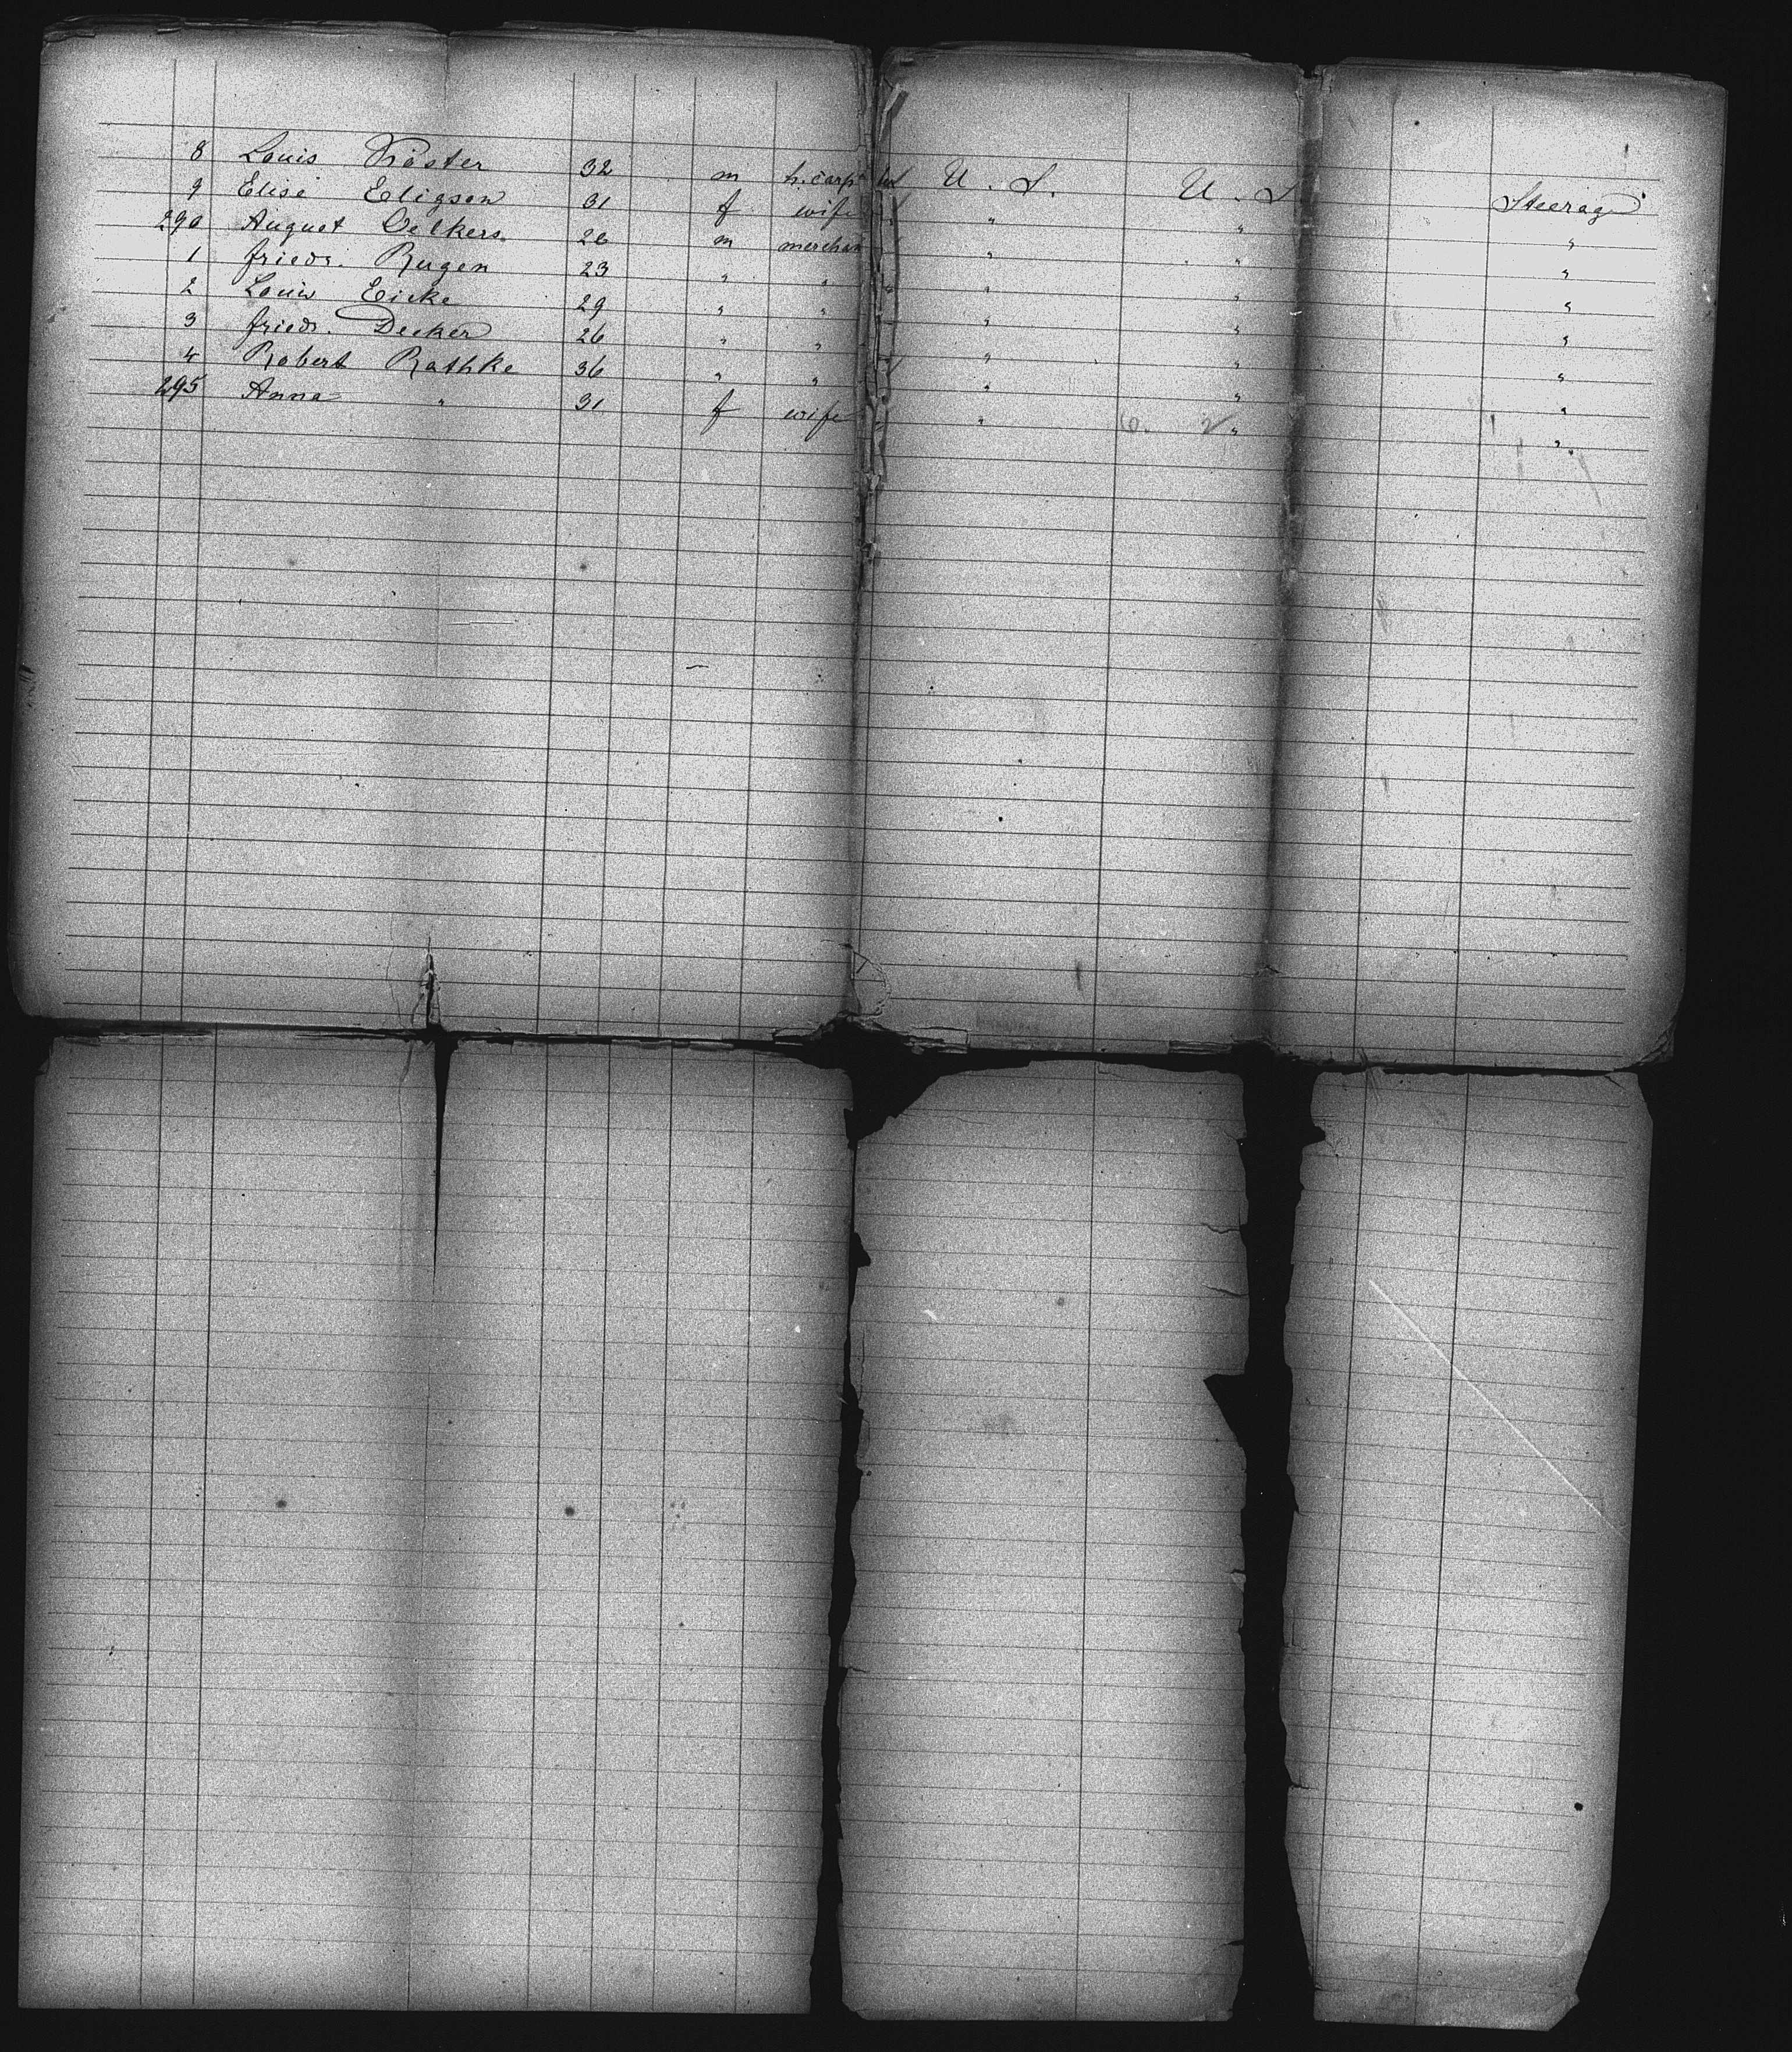 8 Louis Köster 32 m h. carp U. S. U. S. Steerage
9 Elise Eligson 31 f wife " " "
290 August Oelkers 26 m merchan " " "
1 friedr. Rugen 23 " " " " "
2 Louis Eicke 29 " " " " "
3 friedr. Decker 26 " " " " "
4 Robert Rathke 36 " " " " "
295 Anna " 31 f wife " " "